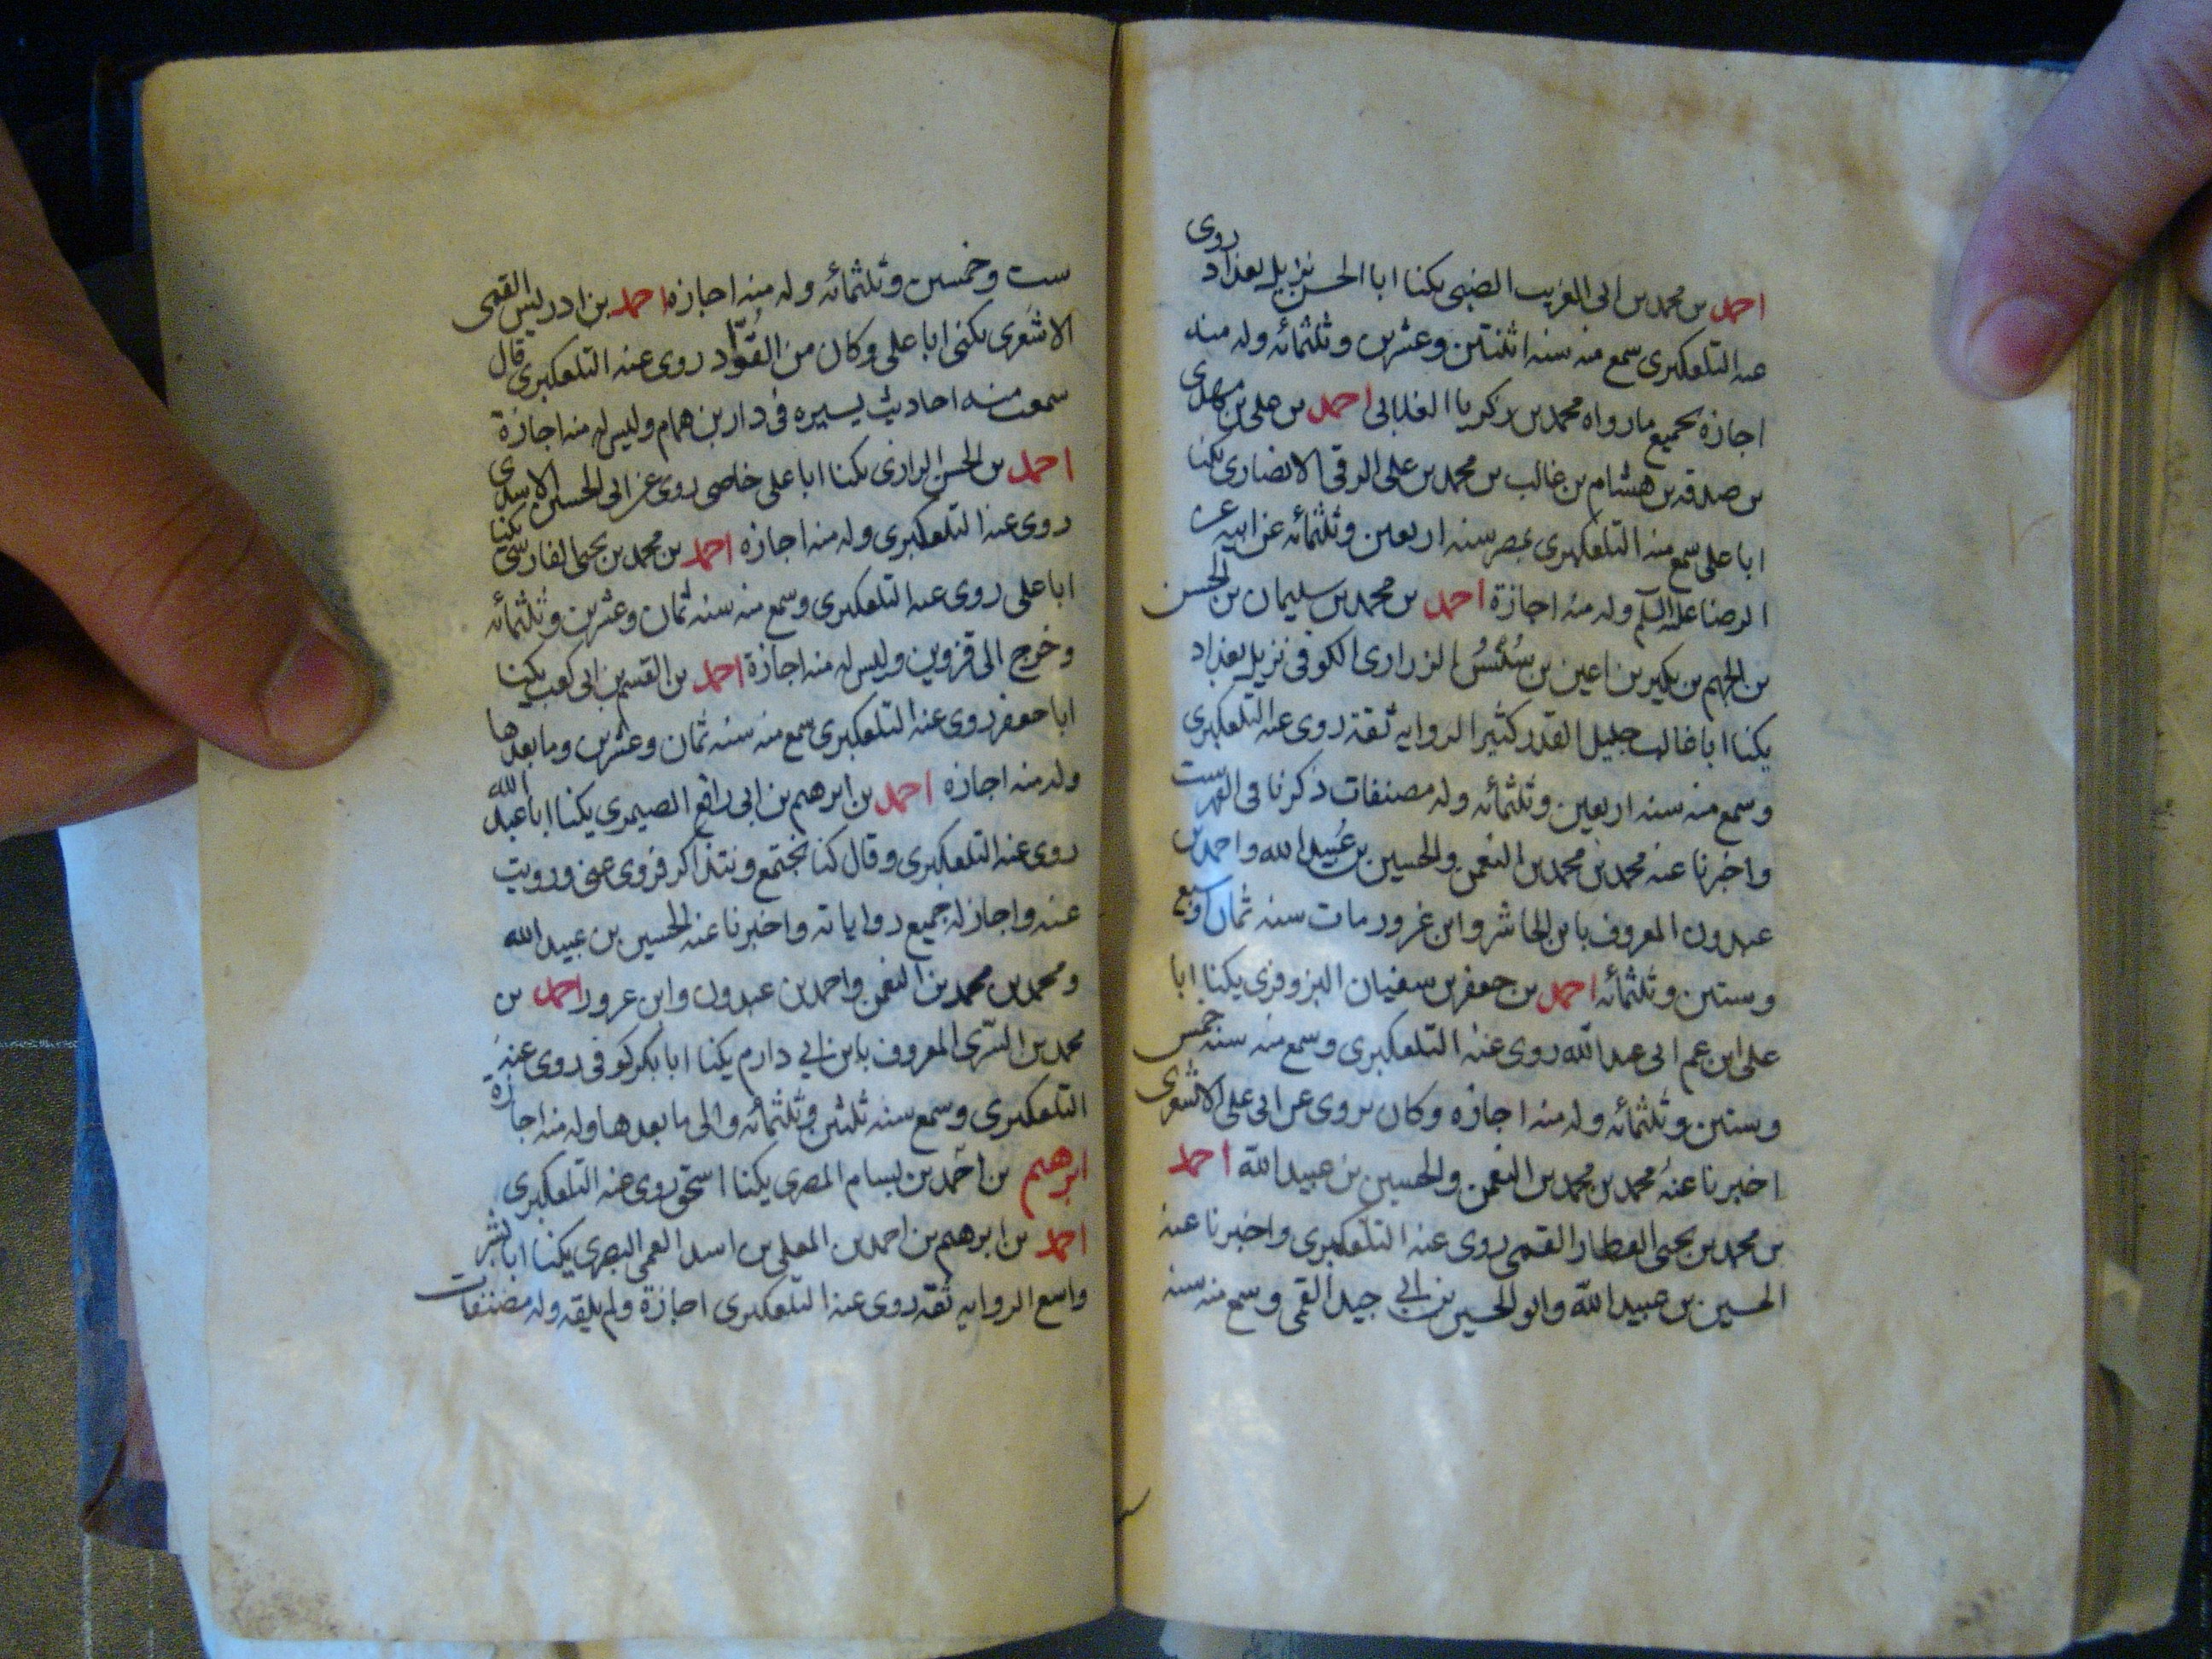 احمد بن محمد بن ابی الغریب الضبی یکنا ابا الحسن نزیل بغداد روی
عنه التلعکبری سمع منه سنه اثنتین وعشرین وثلثمائه وله منه
اجازه بجمیع مارواه محمد بن زکریا الغلابی احمد بن علی بن مهدی
بن صدقه بن هشام بن غالب بن محمد بن علی الرقی الانصاری یکنا
ابا علی سمع منه التلعکبری بمصر سنه اربعین وثلثمائه عن ابیه عن
الرضا علیه السلم وله منه اجازة احمد بن محمد بن سلیمان بن الحسن
بن الجهم بن بکیر بن اعین بن سُنْسُن الزراری الکوفی نزیل بغداد
یکنا ابا غالب جلیل القدر کثیر الروایه ثقة روی عنه التلعکبری
وسمع منه سنه اربعین وثلثمائه وله مصنفات ذکرنا فی الفهرست
واخبرنا عنه محمد بن محمد بن النعمن والحسین بن عُبید الله واحمد بن
عبدون المعروف بابن الحاشر وابن غرور مات سنه ثمان اوسبع
وستین وثلثمائه احمد بن جعفر بن سفیان البزوفری یکنا ابا
علی ابن عم ابی عبد الله روی عنه التلعکبری وسمع منه سنه خمس
وستین وثلثمائه وله منه اجازه وکان یروی عن ابی علی الاشعری
اخبرنا عنه محمد بن محمد بن النعمن والحسین بن عبید الله احمد
بن محمد بن یحیی العطار القمی روی عنه التلعکبری واخبرنا عنه
الحسین بن عبید الله وابو الحسین بن ابی جید القمی وسمع منه سنه
ست وخمسین وثلثمائه وله منه اجازه احمد بن ادریس القمی
الاشعری یکنی ابا علی وکان من القُوّاد روی عنه التلعکبری قال
سمعت منه احادیث یسیره فی دار بن همام ولیس له منه اجازة
احمد بن الحسن الرازی یکنا ابا علی خاصی روی عن ابی الحسین الاسدی
روی عنه التلعکبری وله منه اجازه احمد بن محمد بن یحیی الفارسی یکنا
ابا علی روی عنه التلعکبری وسمع منه سنه ثمان وعشرین وثلثمائه
وخرج الی قزوین ولیس له منه اجازة احمد بن القسم بن ابی کعب یکنا
ابا جعفر روی عنه التلعکبری سمع منه سنه ثمان وعشرین وما بعدها
وله منه اجازه احمد بن ابرهیم بن ابی رافع الصیمری یکنا ابا عبد الله
روی عنه التلعکبری وقال کنا نجتمع ونتذاکر فروی عنی ورویت
عنه واجاز له جمیع روایاته واخبرنا عنه الحسین بن عبید الله
ومحمد بن محمد بن النعمن واحمد بن عبدون وابن عرور احمد بن
محمد بن السّری المعروف بابن ابی دارم یکنا ابا بکر کوفی روی عنه
التلعکبری وسمع سنه ثلثین وثلثمائه والی ما بعدها وله منه اجازة
ابرهیم بن احمد بن بسام المصری یکنا اسحق روی عنه التلعکبری
احمد بن ابرهیم بن احمد بن المعلی بن اسد العمی البصری یکنا ابا بشر
واسع الروایه ثقة روی عنه التلعکبری اجازة ولم یلقه وله مصنفات